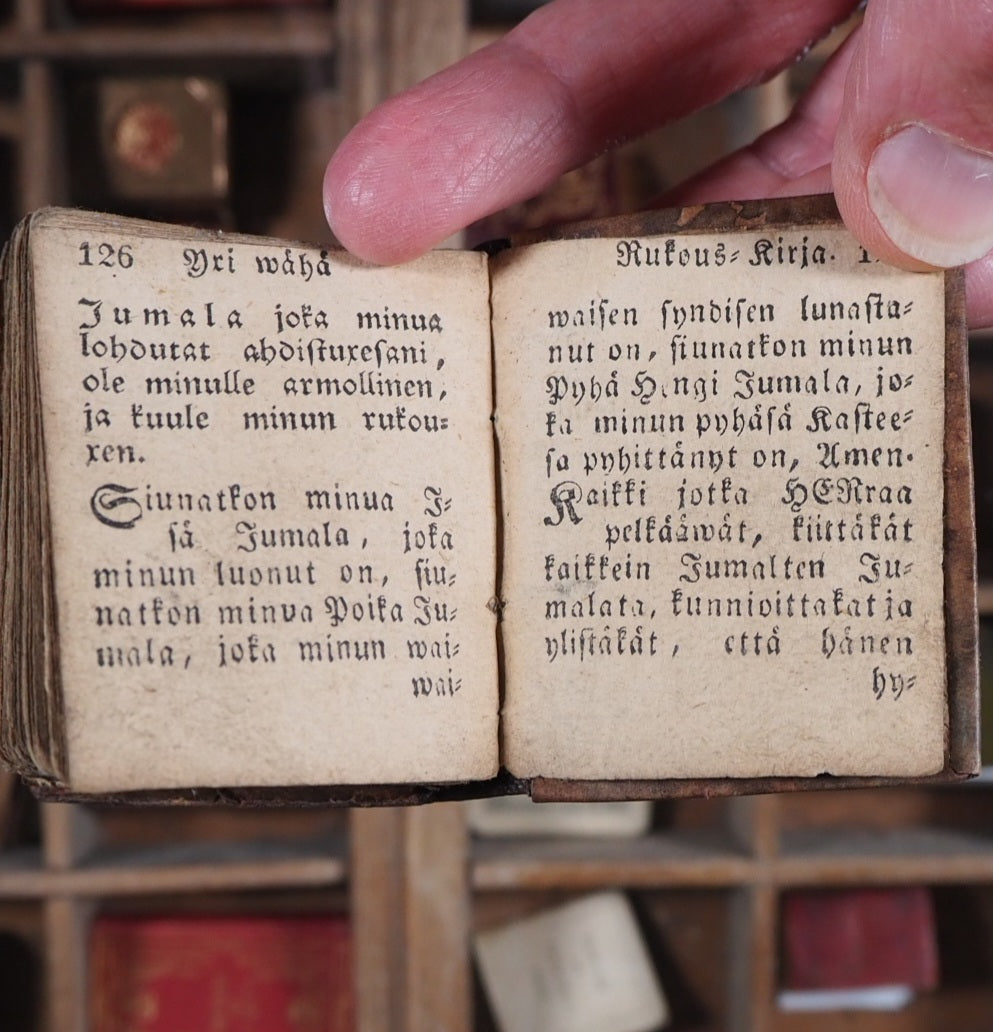 126 Yxi wähä
Jumala joka minua
lohdutat ahdistuxesani,
ole minulle armollinen,
ja kuule minun rukou⸗
xen.
Siunatkon minua I⸗
sä Jumala, joka
minun luonut on, siu⸗
natkon minua Poika Ju⸗
mala, joka minun wai⸗
wai⸗
Rukous⸗Kirja.
waisen syndisen lunasta⸗
nut on, siunatkon minun
Pyhä Hengi Jumala, jo⸗
ka minun pyhäsä Kastee⸗
sa pyhittänyt on, Amen.
Kaikki jotka HERraa
pelkääwät, kiittäkät
kaikkein Jumalten Ju⸗
malata, kunnioittakat ja
ylistäkät, että hänen
hy⸗